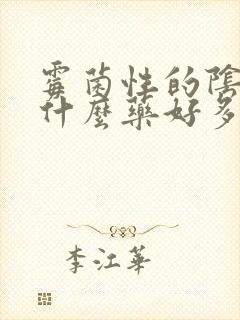 霉菌性的陰
什麼藥好多
李江華